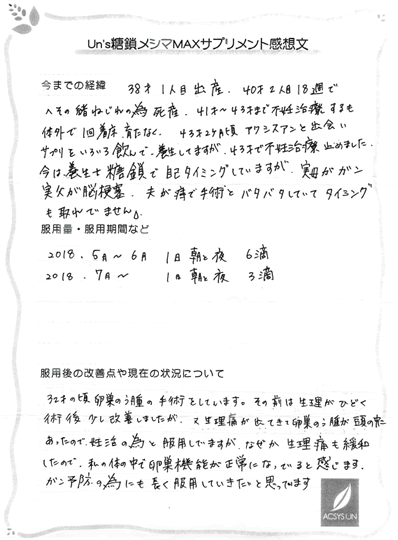 Un's糖鎖メシマMAXサプリメント感想文
今までの経緯 38才1人目出産. 40才2人目18週で
へその緒ねじれの為死産. 41才〜43才まで不妊治療するも
体外で1回着床、育たなく. 43才2ヶ月頃アクシスアンと出会い
サプリをいろいろ飲んで、養生してますが、43才で不妊治療止めました.
今は養生と糖鎖で自己タイミングしていますが、実母がガン
実父が脳梗塞. 夫が痔で手術とバタバタしていてタイミング
も取れてません。
服用量・服用期間など
2018. 5月〜6月 1日朝と夜 6滴
2018. 7月〜 1日朝と夜 3滴
服用後の改善点や現在の状況について
32才の頃卵巣のう腫の手術をしています。その前は生理がひどく
術後少し改善しましたが、又生理痛が出てきて卵巣のう腫が頭の片に
あったので、妊活の為と服用してますが、なぜか生理痛も緩和
したので、私の体の中で卵巣機能が正常になっていると感じます.
ガン予防の為にも長く服用していきたいと思ってます
ACSYS UN